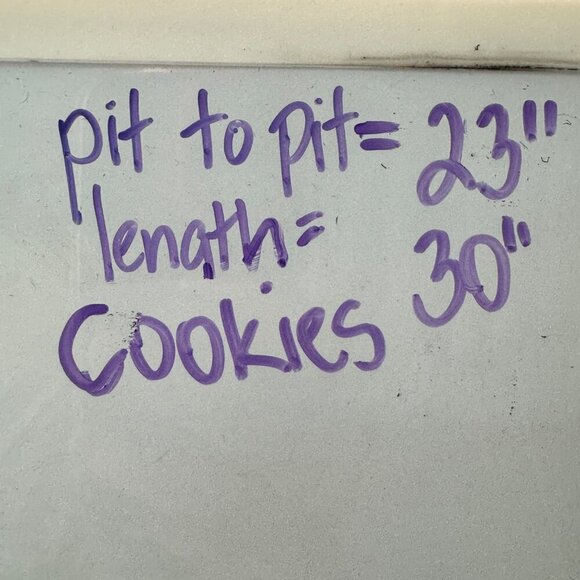 pit to pit= 23"
length= 30"
Cookies